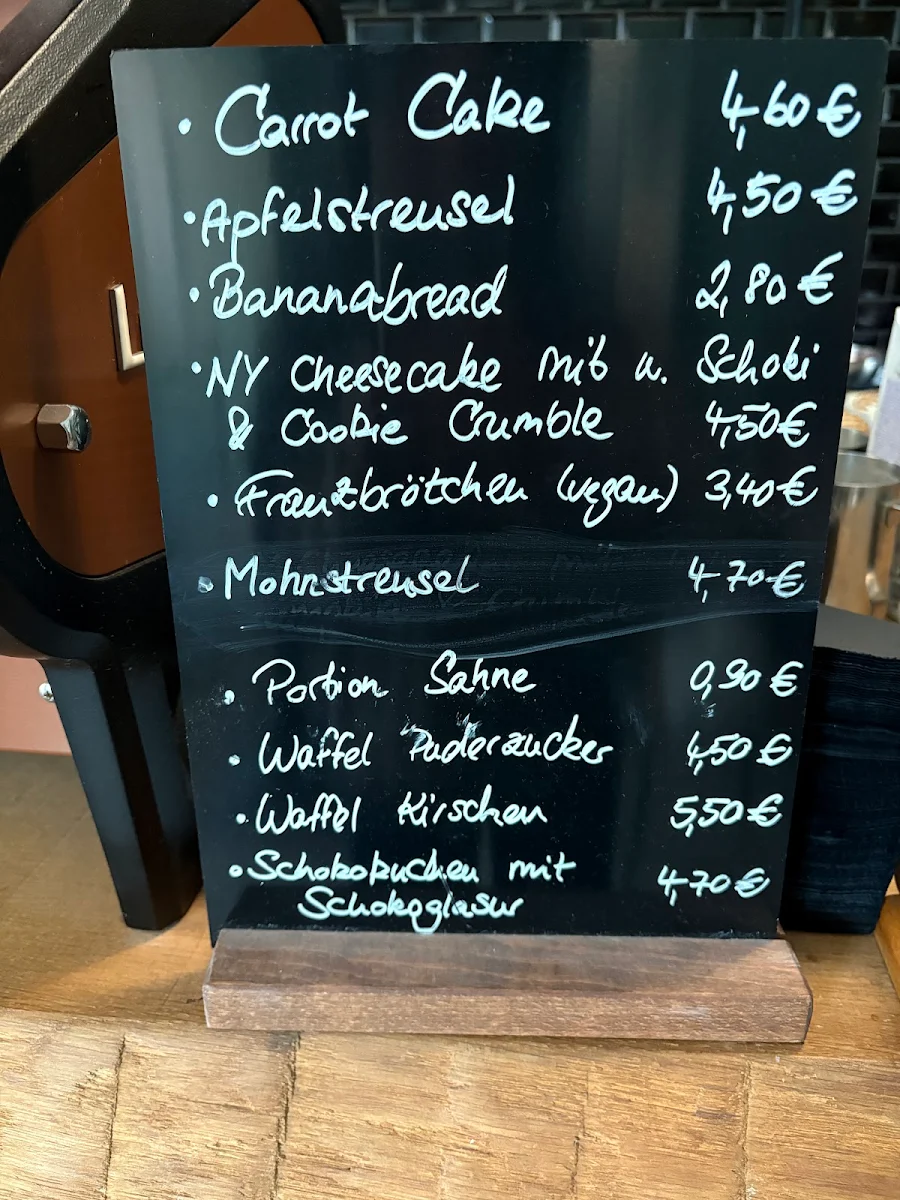 • Carrot Cake 4,60 €
• Apfelstreusel 4,50 €
• Bananabread 2,80 €
• NY Cheesecake mit w. Schoki
& Cookie Crumble 4,50 €
• Franzbrötchen (vegan) 3,40 €
• Mohnstreusel 4,70 €
• Portion Sahne 0,90 €
• Waffel Puderzucker 4,50 €
• Waffel Kirschen 5,50 €
• Schokokuchen mit 4,70 €
Schokoglasur
L